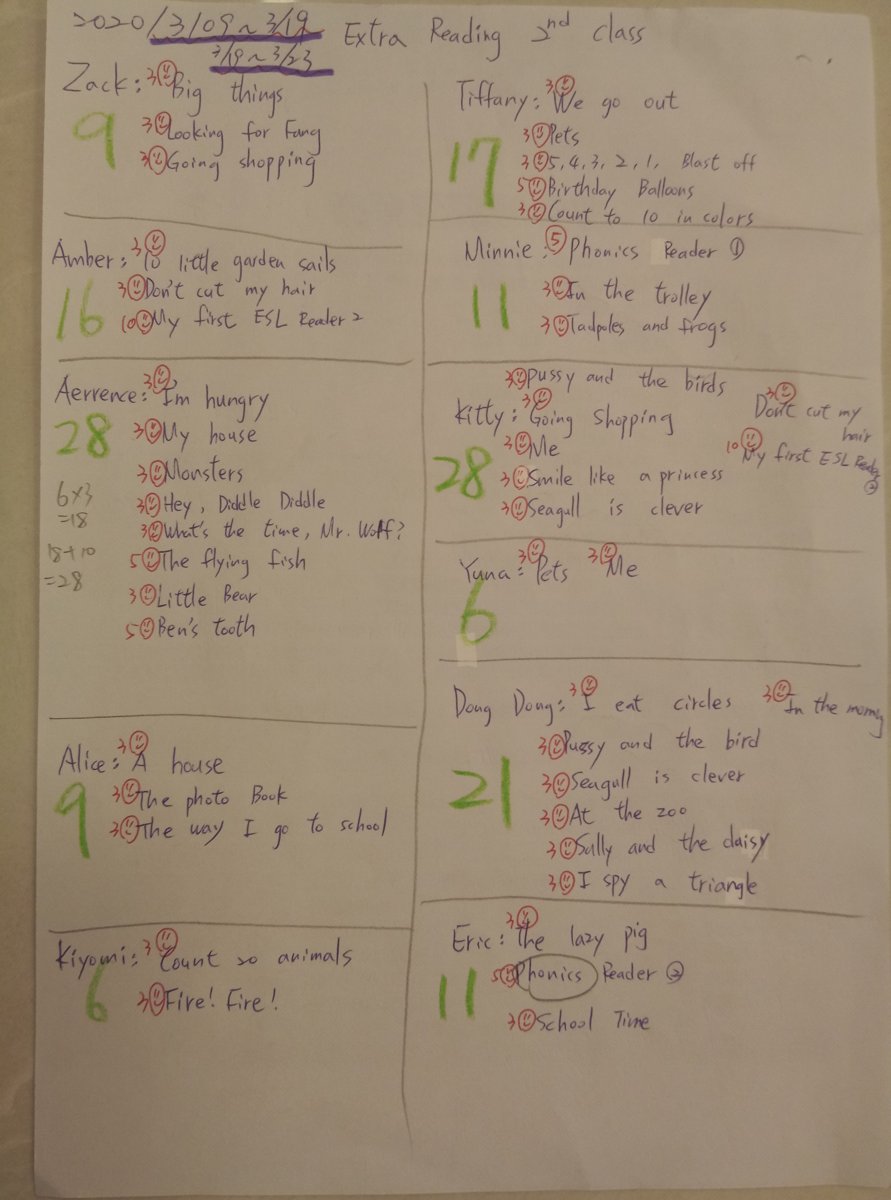 2020/3/09~3/19 Extra Reading 2nd class
3/19~3/23
Zack: 3 Big things
9
3 Looking for Fang
3 Going shopping
Amber: 3 10 little garden sails
3 Don't cut my hair
16
10 My first ESL Reader 2
Aerrence: 3 I'm hungry
28
3 My house
3 Monsters
6×3
=18
3 Hey, Diddle Diddle
3 What's the time, Mr. Wolf?
18+10
=28
5 The flying fish
3 Little Bear
5 Ben's tooth
Alice: 3 A house
9
3 The photo Book
3 The way I go to school
Kiyomi: 3 Count 20 animals
6
3 Fire! Fire!
Tiffany: 3 We go out
17
3 Pets
3 5, 4, 3, 2, 1, Blast off
5 Birthday Balloons
3 Count to 10 in colors
Minnie: 5 Phonics Reader ①
11
3 In the trolley
3 Tadpoles and frogs
3 Pussy and the birds
Kitty: 3 Going shopping
28
3 Me
3 Smile like a princess
3 Seagull is clever
3 Don't cut my
hair
10 My first ESL Reader
②
Yuna: 3 Pets 3 Me
6
Dong Dong: 3 I eat circles 3 In the morning
21
3 Pussy and the bird
3 Seagull is clever
3 At the zoo
3 Sally and the daisy
3 I spy a triangle
Eric: 3 The lazy pig
11
5 Phonics Reader ②
3 School Time